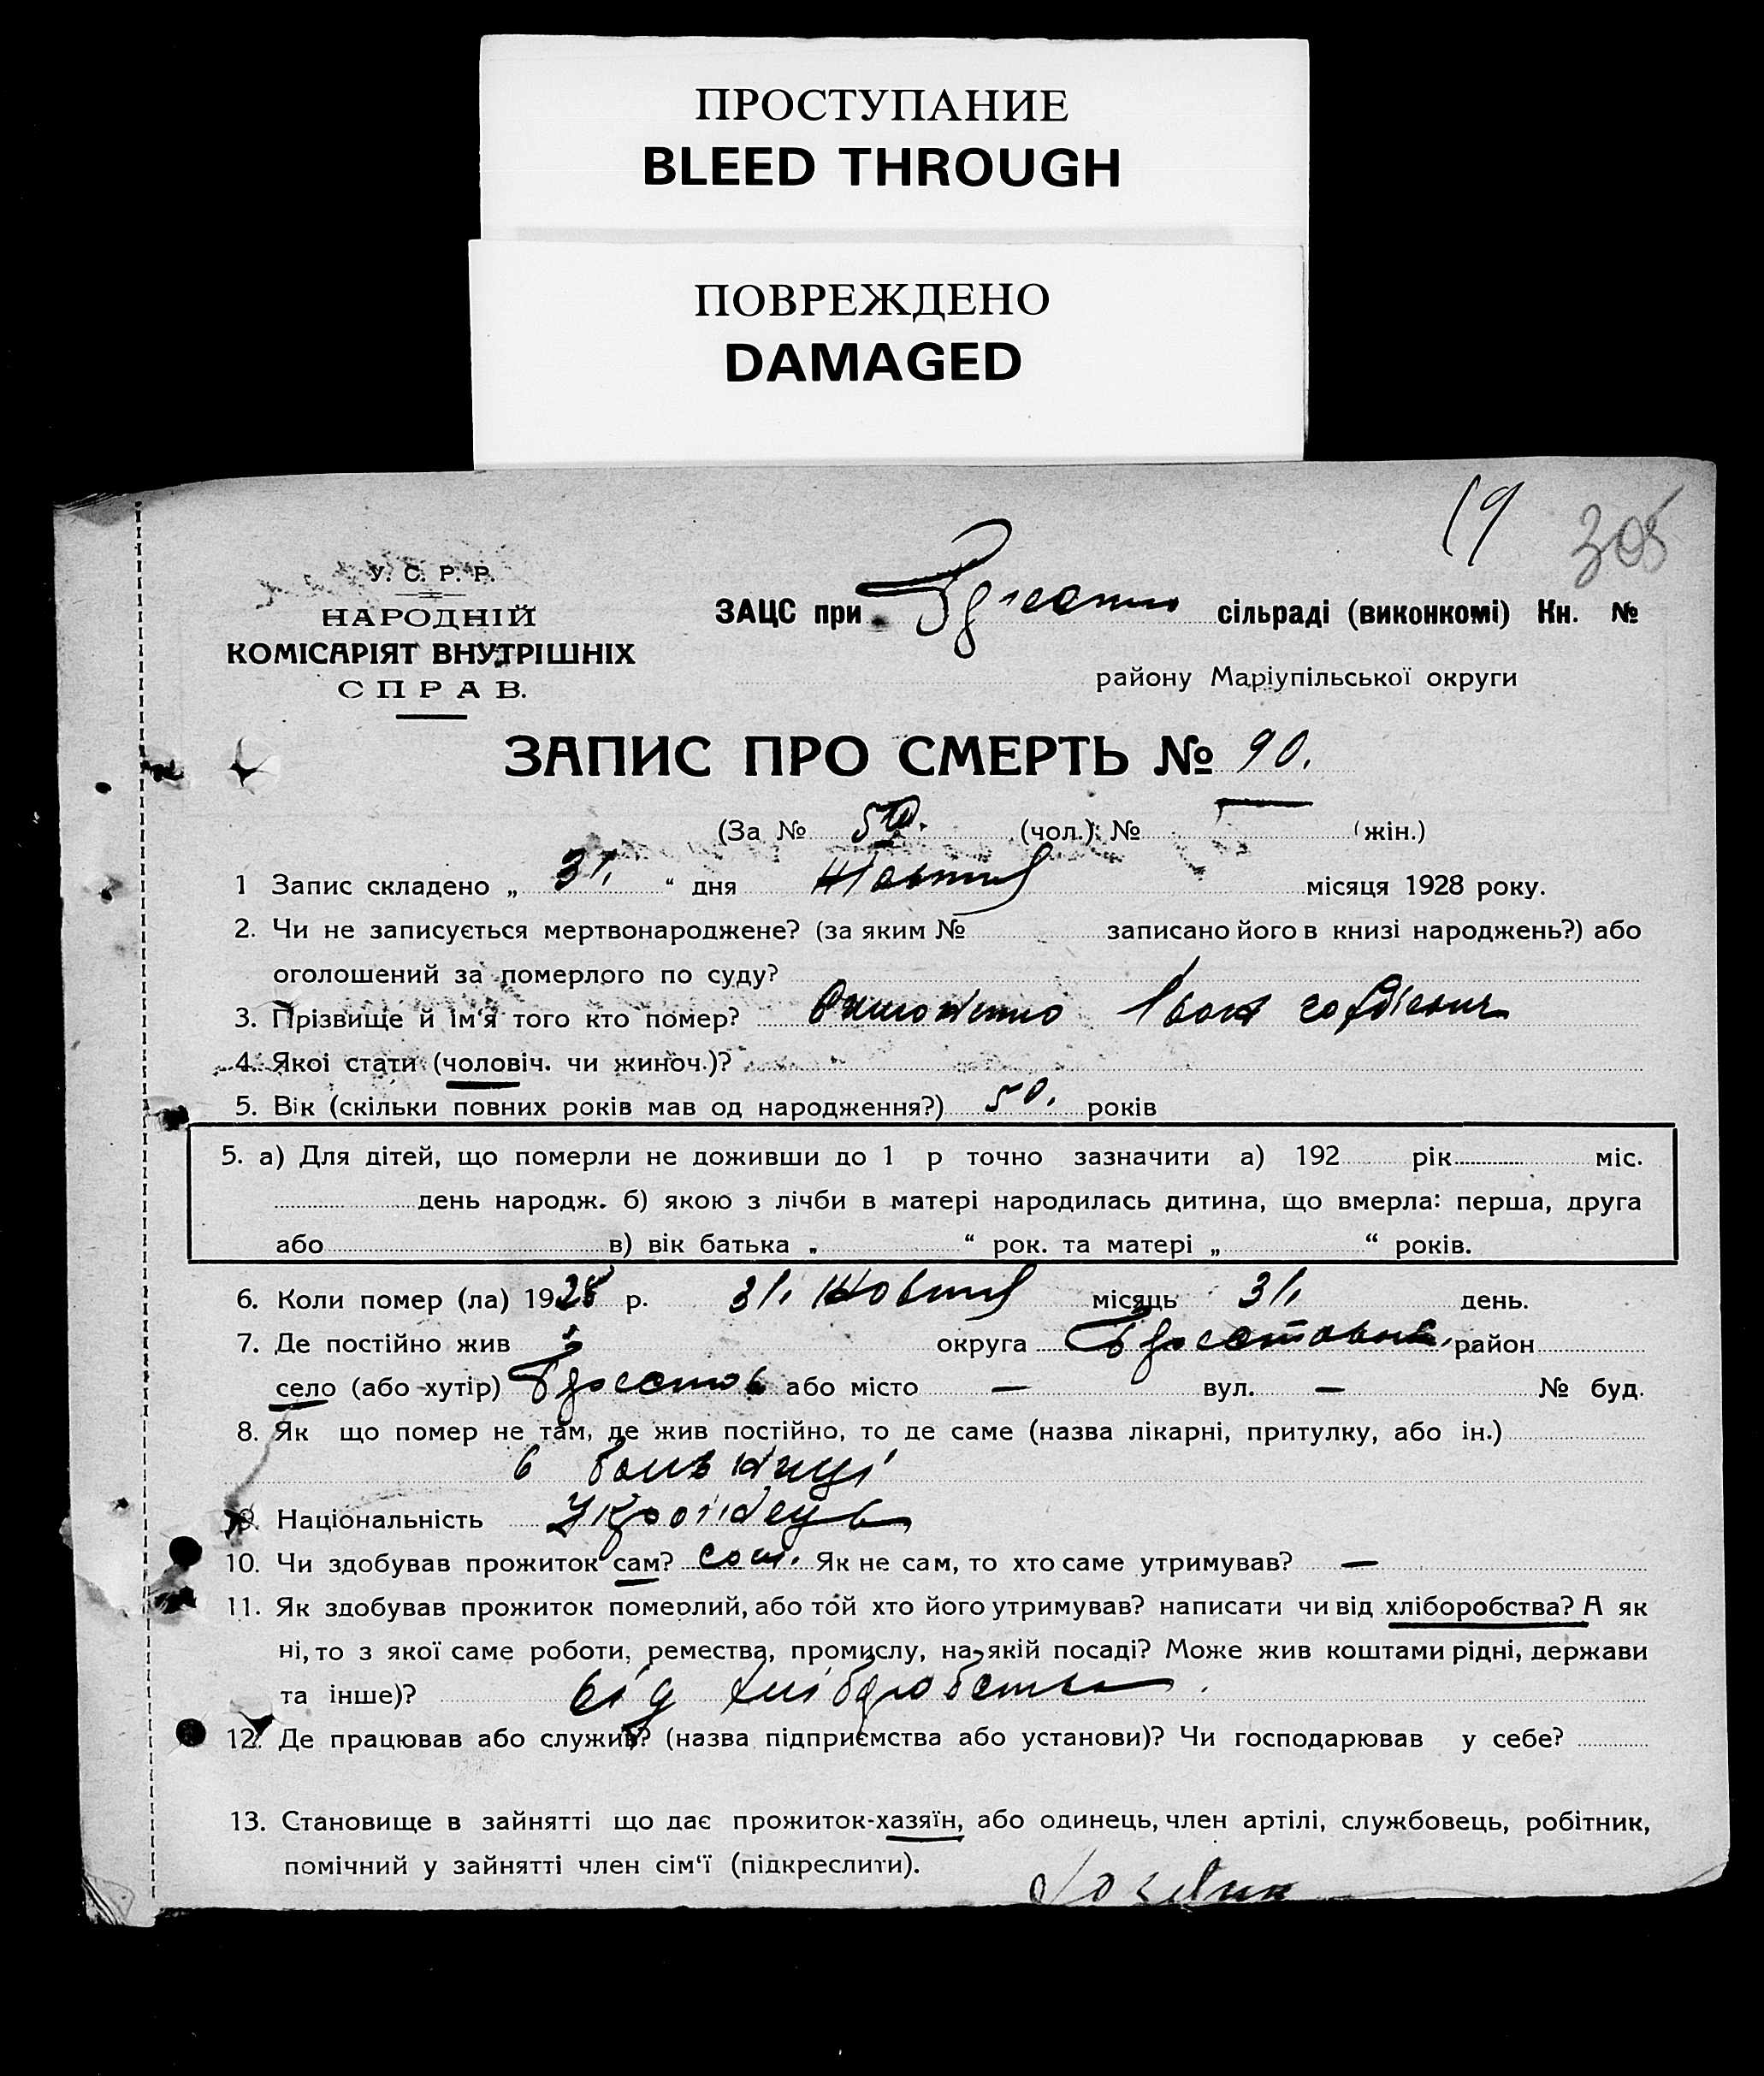 ПРОСТУПАНИЕ
BLEED THROUGH
ПОВРЕЖДЕНО
DAMAGED
19 305
У. С. Р. Р.
НАРОДНІЙ
КОМІСАРІЯТ ВНУТРІШНІХ
СПРАВ.
ЗАЦС при сільраді (виконкомі) Кн. №
району Маріупільської округи
ЗАПИС ПРО СМЕРТЬ № 90.
(За № 50. (чол.); № (жін.)
1 Запис складено „ 31. “ дня Жовтня місяця 1928 року.
2. Чи не записується мертвонароджене? (за яким № записано його в книзі народжень?) або
оголошений за померлого по суду?
3. Прізвище й ім'я того кто помер? Іван
4. Якої стати (чоловіч. чи жиноч.)?
5. Вік (скільки повних років мав од народження?) 50. років
5. а) Для дітей, що померли не доживши до 1 р точно зазначити а) 192 рік міс.
день народж. б) якою з лічби в матері народилась дитина, що вмерла: перша, друга
або в) вік батька „ “ рок. та матері „ “ років.
6. Коли помер (ла) 1928 р. 31. Жовтня місяць 31. день.
7. Де постійно жив округа район
село (або хутір) або місто — вул. — № буд.
8. Як що помер не там, де жив постійно, то де саме (назва лікарні, притулку, або ін.)
в больниці
9. Національність Україңець
10. Чи здобував прожиток сам? сам. Як не сам, то хто саме утримував? —
11. Як здобував прожиток померлий, або той хто його утримував? написати чи від хліборобства? А як
ні, то з якої саме роботи, ремества, промислу, на якій посаді? Може жив коштами рідні, держави
та інше)? від хліборобства.
12. Де працював або служив? (назва підприємства або установи)? Чи господарював у себе?
13. Становище в зайнятті що дає прожиток-хазяїн, або одинець, член артілі, службовець, робітник,
помічний у зайнятті член сім'ї (підкреслити).